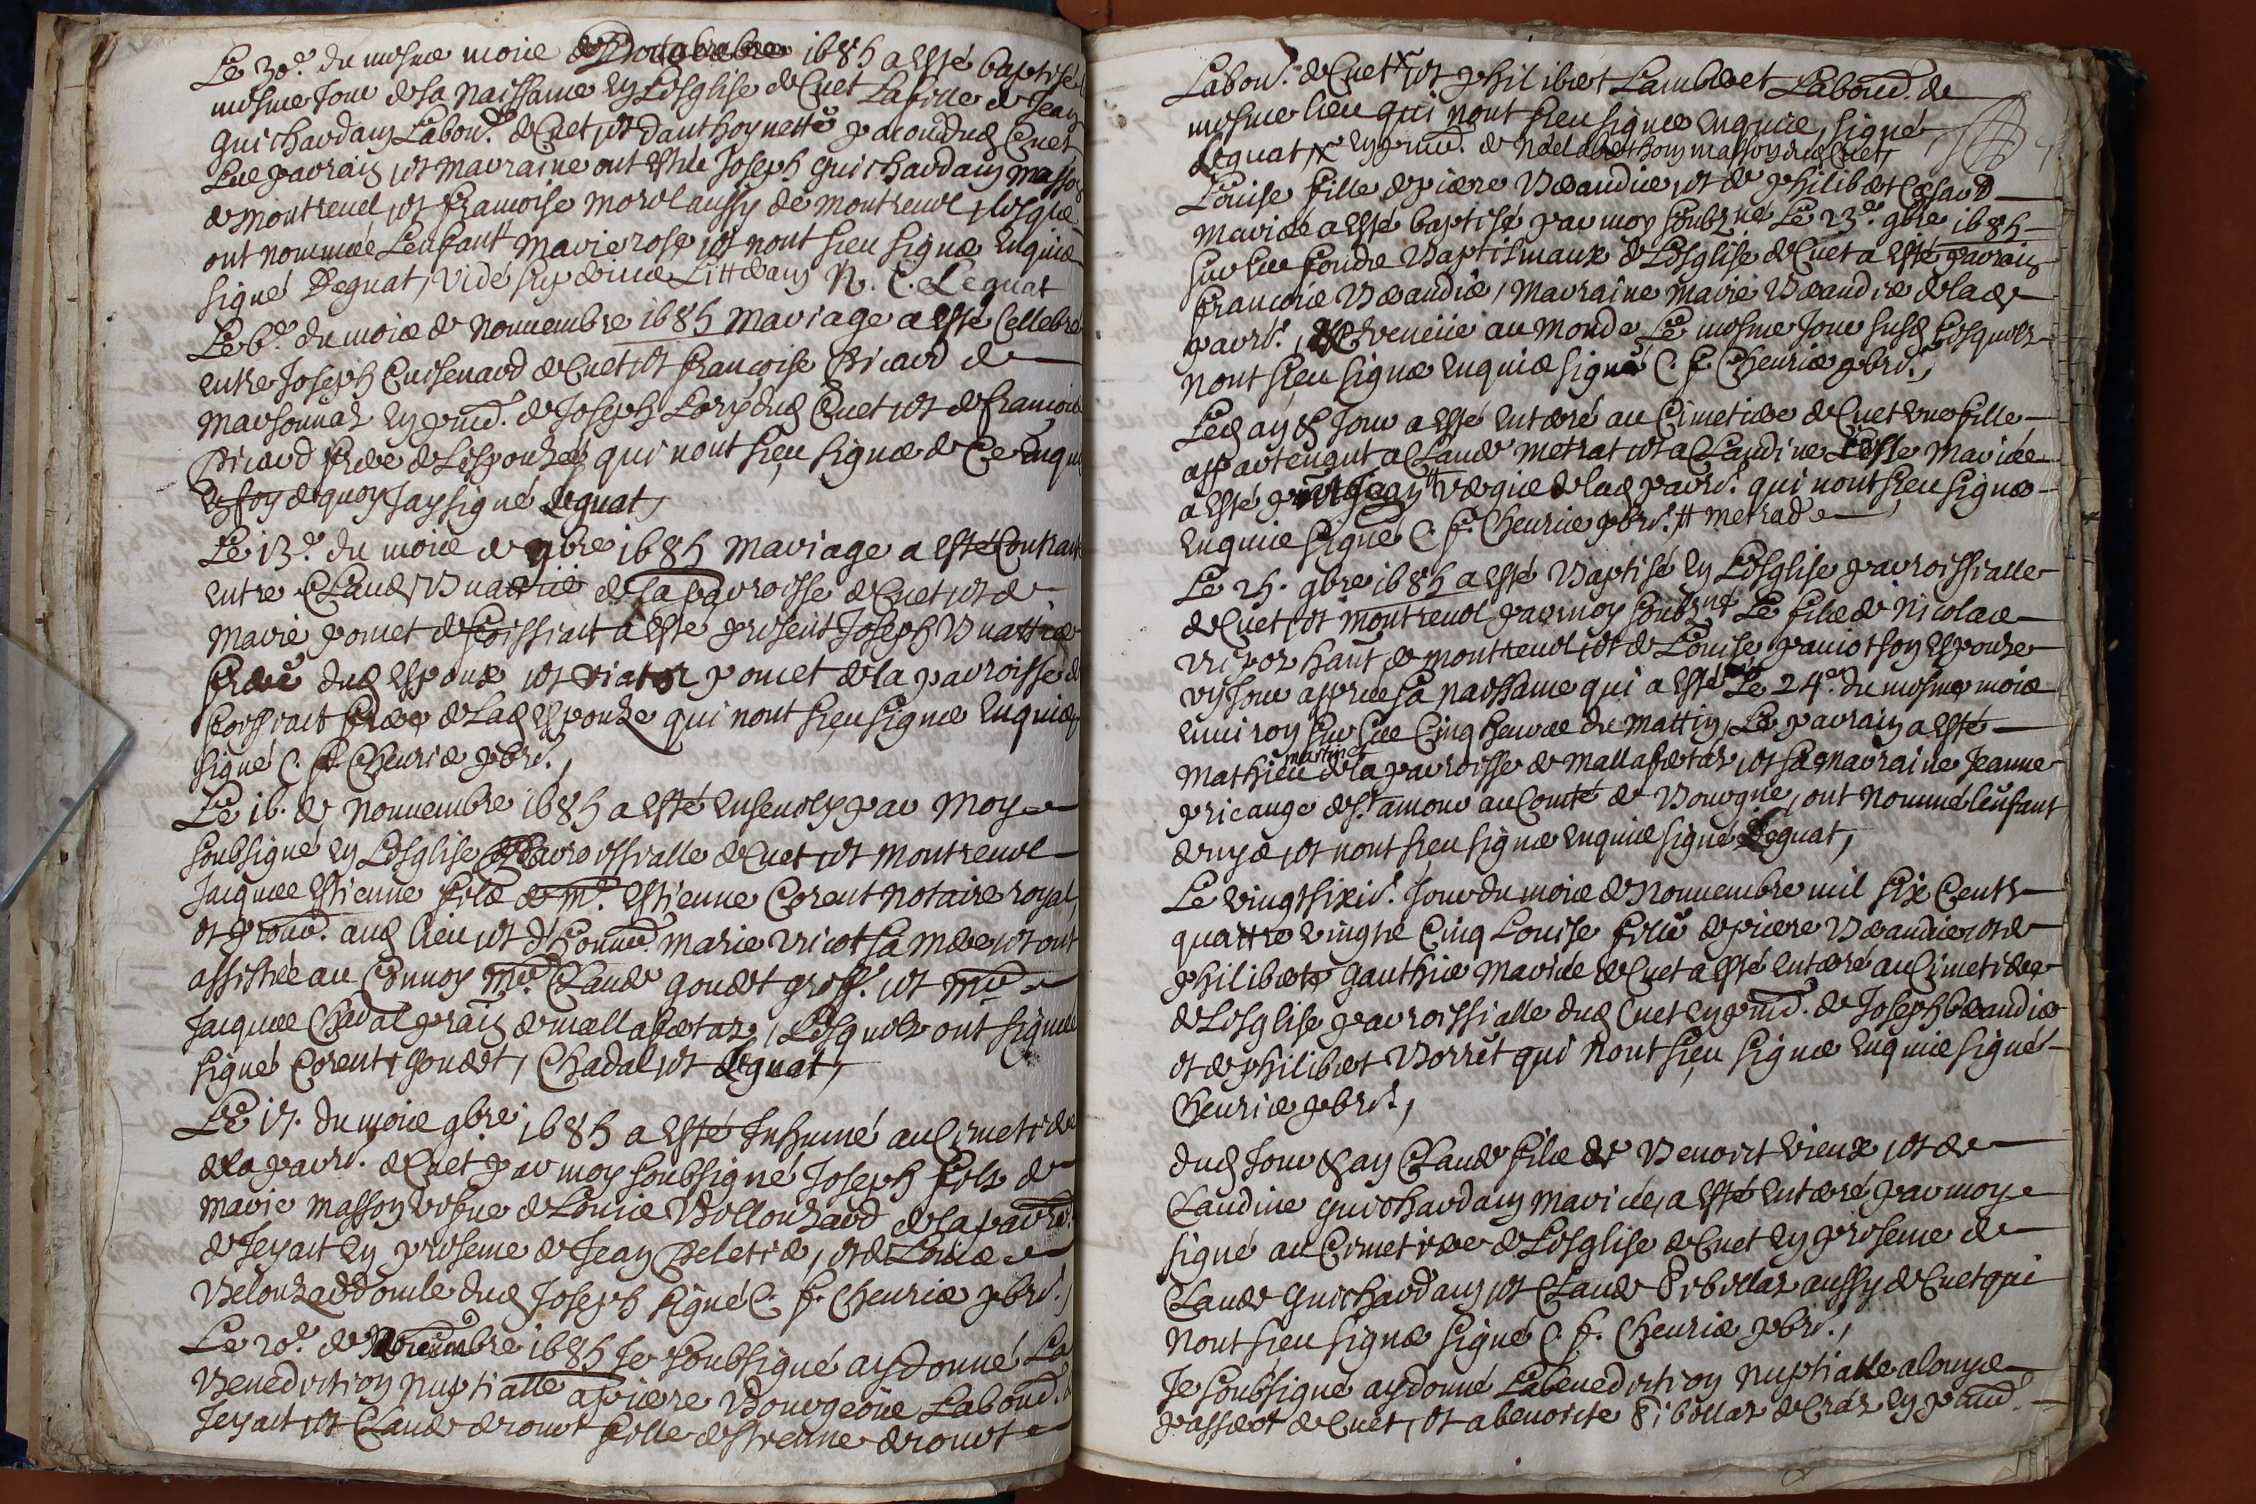 Le 30e. du mesme mois d'octobre 1685 a esté baptisé
mesme Jour de sa Naissance en Lesglise de Cuet La fille de Jean
Guichardan Labour. de Cuet et d'anthoynette dud Cuet
Les parrain et marraine ont estés Joseph Guichardan masson
de montrevel et francoise morel aussy de montrevel, lesque
ont nommée Lenfant marie rose et nont sceu signer Enquis
signé Deguat, N. C. Leguat
Le 6e. du mois de Novembre 1685 mariage a esté Cellebré
entre Joseph Cuisenard de Cuet et françoise Bicard de
marsonnaz en pnce. de Joseph Lorin dud Cuet et de francois
Bicard frere de Lespouzée qui nont sceu signer de Ce Enquis
En foy dequoy Jay signé deguat,
Le 13e. du mois de 9bre 1685 mariage a esté Contracté
entre Claude Buattié de la parroisse de Cuet et de
marie pomet de foissiait a esté present Joseph Buattier
frere dud Espoux et viator pomet de la parroisse de
foissiait frere de Lad Espouze qui nont sceu signer Enquis
signé C. f. Cheurier pbre.,
Le 16. de Novembre 1685 a esté Ensevely par moy
soubsigné en Lesglise parroissialle de Cuet et montrevel
Jacques Estienne fils de me. Estienne Corent Notaire royal,
et procu. aud lieu et d'honne. marie vricot sa mere et ont
assistés au Convoy mre. Claude goudet et mre
Jacques Chadal de mallafretaz, Lesquels ont signés
signé Corent, goudet, Chadal et deguat,
Le 17. du mois 9bre 1685 a esté Inhumé au Cimetiere
de la parre. de Cuet par moy soubsigné Joseph fils de
marie masson vefve de Louis Bellouzard de la parre.
de Jeyait en presence de Jean Peletier, et de Louis
Belouzard oncle dud Joseph signé C. f. Cheurier pbre.,
Le 20e. de Novembre 1685 Je soubsigné ay donné La
Benediction Nuptialle a pierre Bourgeois Labour. de
Jeyait et Claude drouet fille d'estienne drouet
Labour. de Cuet X et philibert Lambert Labour. de
mesme lieu qui nont sceu signer Enquis, signé
deguat, X en pnce. de Noel masson dud Cuet,
Louise fille de pierre Beaudier et de philiberte
mariés a esté baptisé par moy soubzné Le 23e. 9bre 1685
sur Les fondre Baptismaux de Lesglise de Cuet a esté parrain
francois Beaudier, marraine marie Beaudier de lad
parre., venüe au monde Le mesme Jour susd Lesquels
nont sceu signer Enquis signé C. f. Cheurier pbre.,
Led an et Jour a esté Entéré au Cimetiere de Cuet une fille
appartenant a Claude metrat et a Claudine mariés
a esté vergie de lad parre. qui nont sceu signer
Enquis signé C. f. Cheurier pbre. # metrade
Le 25. 9bre 1685 a esté Baptisé en Lesglise parroissialle
de Cuet et montrevel par moy soubzné Le fils de Nicolas
haut de montrevel et de Louise son Espouze
un Jour apprés sa naissance qui a esté le 24e. du mesme mois
Environ sur Les Cinq heures du mattin, Le parrain a esté
mathieu martinet de la parroisse de mallafretaz et sa marraine Jeanne
pricange de st amour au Comté de Bourgne, ont Nommé Lenfant
denys et nont sceu signer Enquis signé deguat,
Le vingtsixie. Jour du mois de Novembre mil six Cents
quattre vingts Cinq Louise fille de pierre Beaudier et de
philiberte Gauthier mariés de Cuet a esté Entéré au Cimetiere
de Lesglise parroissialle dud Cuet en pnce. de Joseph beaudier
et de philibert Borret qui Nont sceu signer Enquis signé
Cheurier pbre.,
dud Jour et an Claude fils de Benoict vieux et de
Claudine Guichardan mariés, a esté Entéré par moy
signé au Cimetiere de Lesglise de Cuet en presence de
Claude Guichardan et Claude Piboulaz aussy de Cuet qui
Nont sceu signer signé C. f. Cheurier pbre.,
Je soubsigné ay donné La benediction Nuptialle a louys
passerot de Cuet, et a benoiste Piboulaz de Craz en pnce.